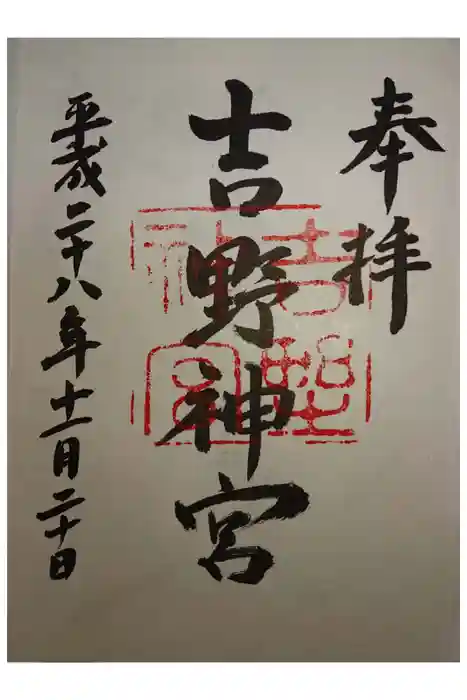 奉拝
吉野神宮
平成二十八年十一月二十日
吉野
神宮